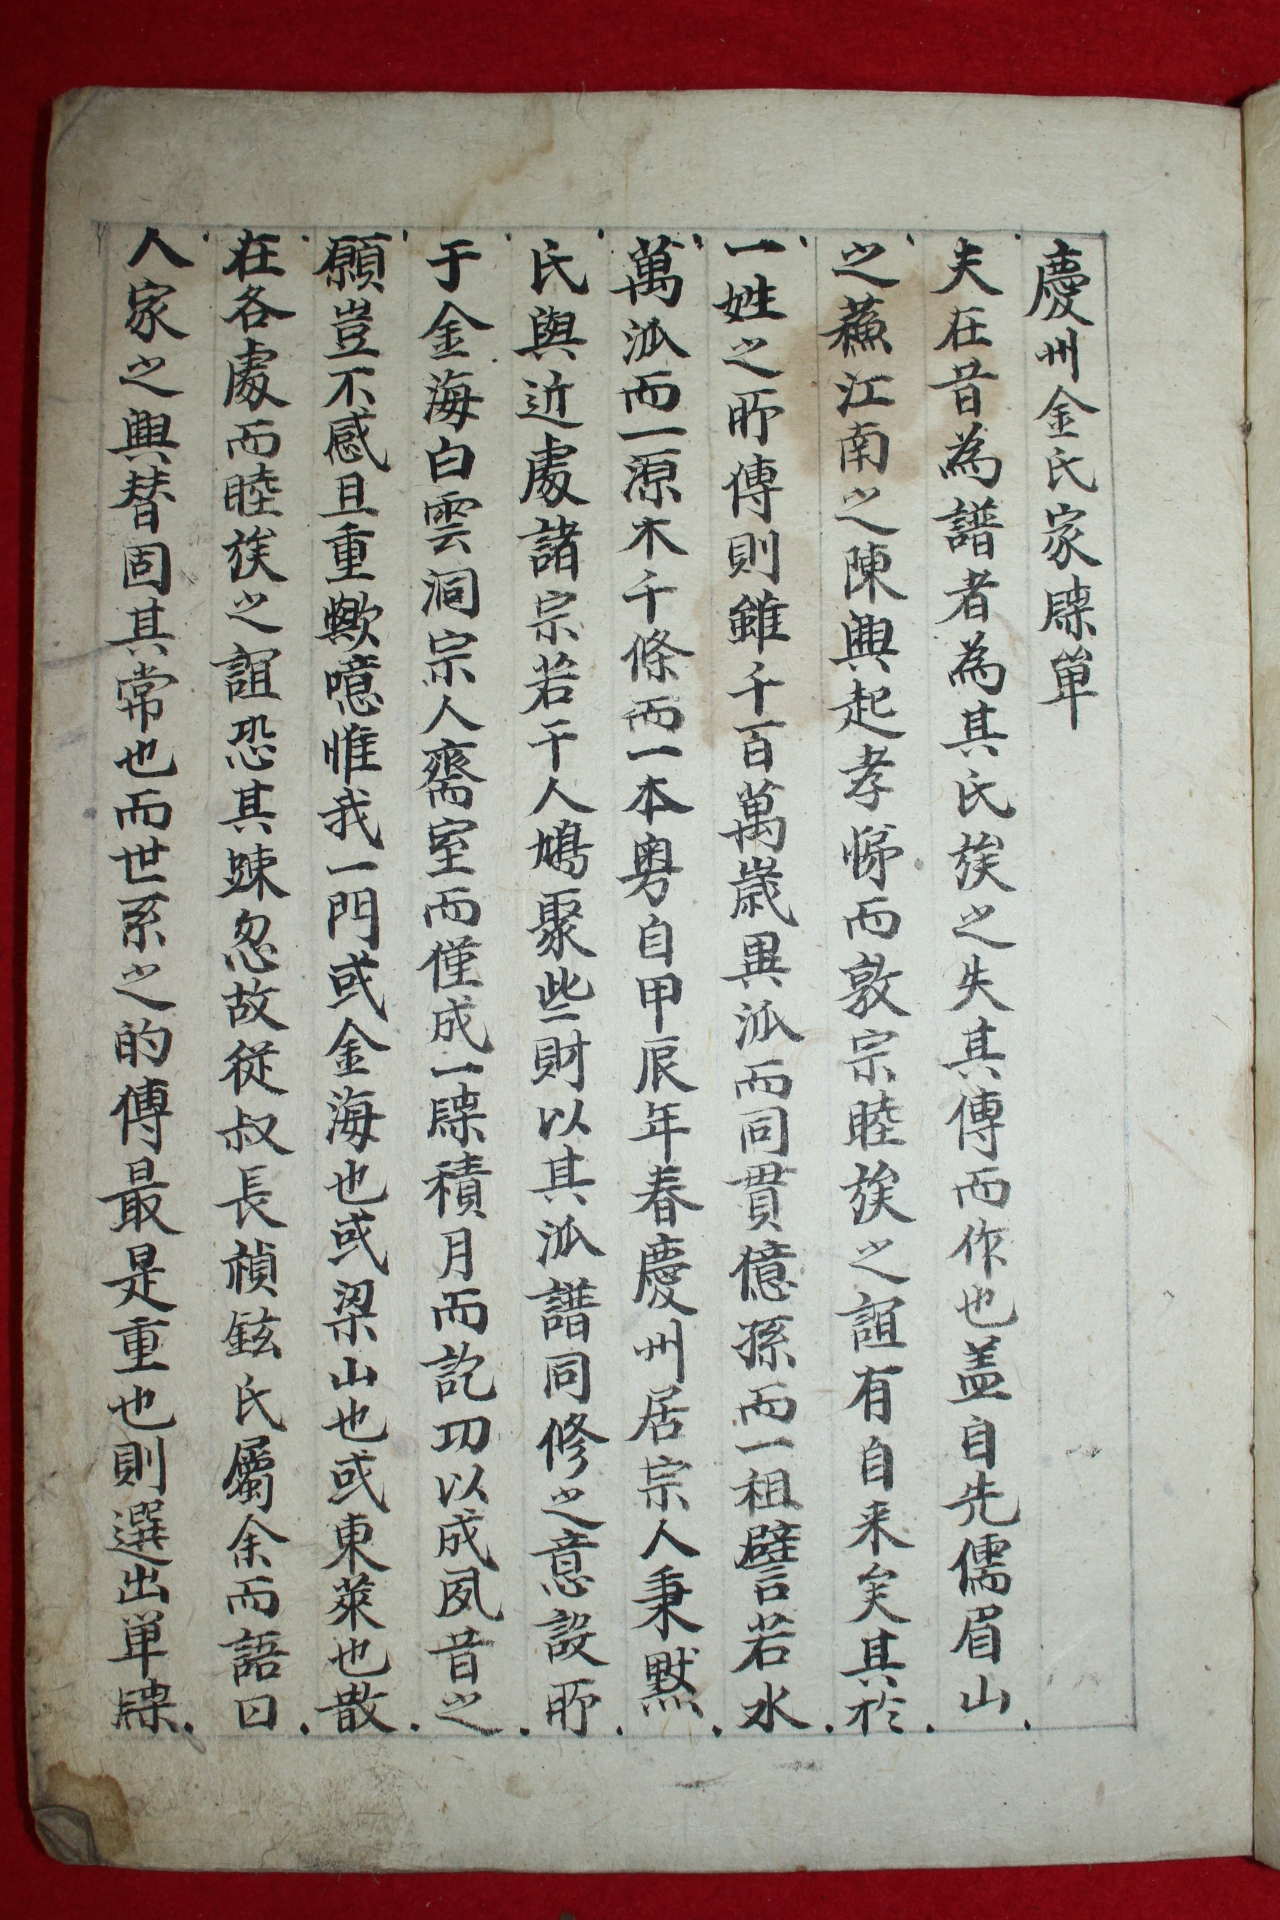 慶州金氏家牒単
夫在昔為譜者為其氏族之失其傳而作也盖自先儒眉山
之蘓江南之陳興起孝悌而敦宗睦族之誼有自来矣其於
一姓之所傳則雖千百萬歲異派而同貫億孫而一祖譬若水
萬派而一源木千條而一本粤自甲辰年春慶州居宗人秉黙
氏與近處諸宗若干人鳩聚些財以其派譜同修之意設所
于金海白雲洞宗人齋室而僅成一牒積月而訖功以成夙昔之
願豈不感且重歟噫惟我一門或金海也或梁山也或東萊也散
在各處而睦族之誼恐其踈忽故從叔長禎鉉氏屬余而語曰
人家之興替固其常也而世系之的傳最是重也則選出単牒